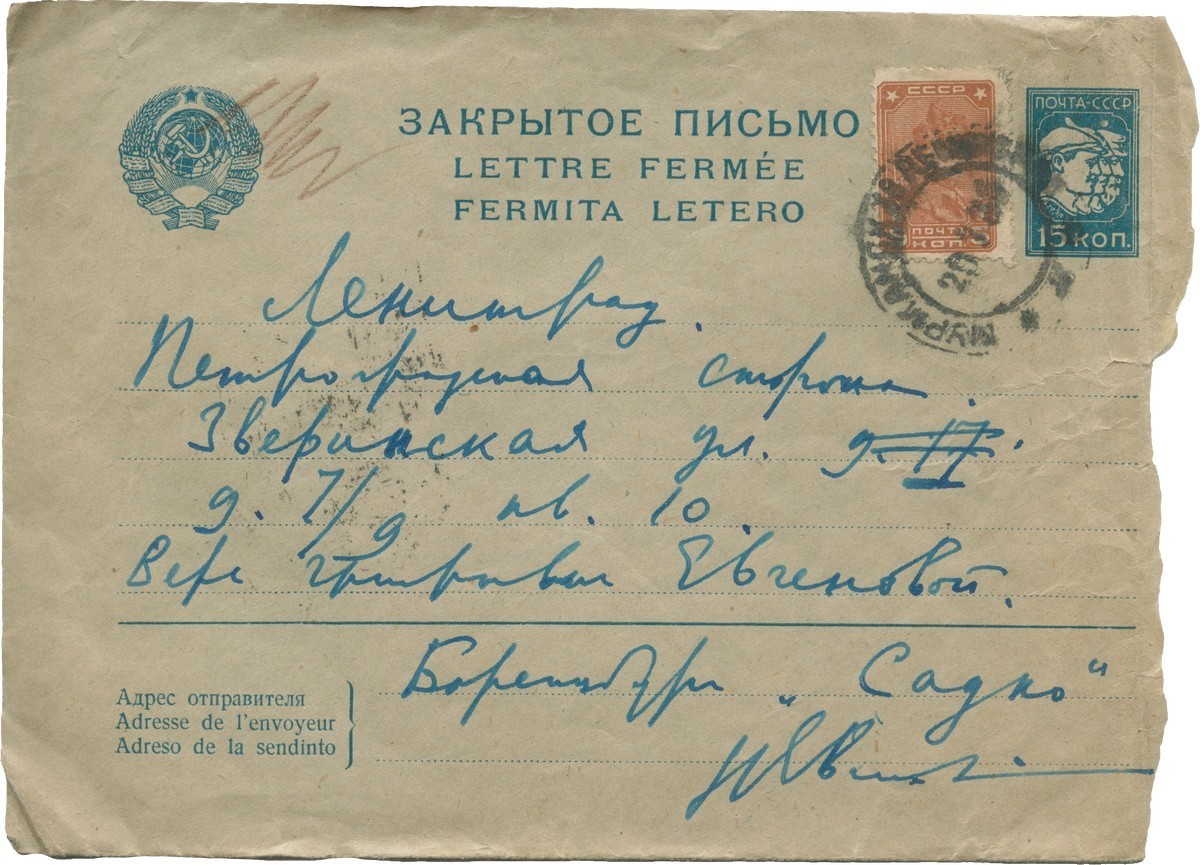 ЗАКРЫТОЕ ПИСЬМО
LETTRE FERMÉE
FERMITA LETERO
СССР
ПОЧТА
5 КОП. 5
ПОЧТА-СССР
15 КОП.
МУРМАНСК
20
Ленинград.
Петроградская сторона.
Зверинская ул. д. 17.
д. 7/9 кв. 10.
Вере Евгеновой.
"Садко"
Адрес отправителя
Adresse de l'envoyeur
Adreso de la sendinto